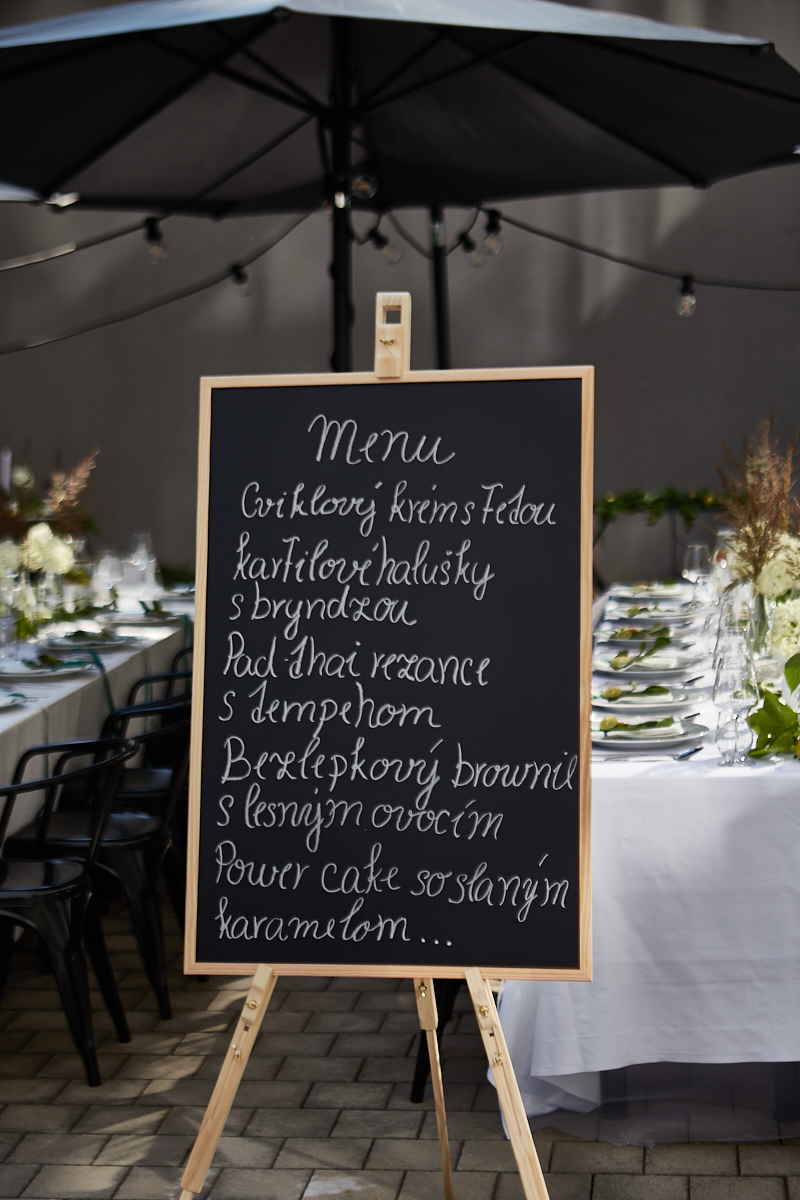 Menu
Cviklový krém s Fetou
karfilové halušky
s bryndzou
Pad thai rezance
s tempehom
Bezlepkový brownie
s lesným ovocím
Power cake so slaným
karamelom...